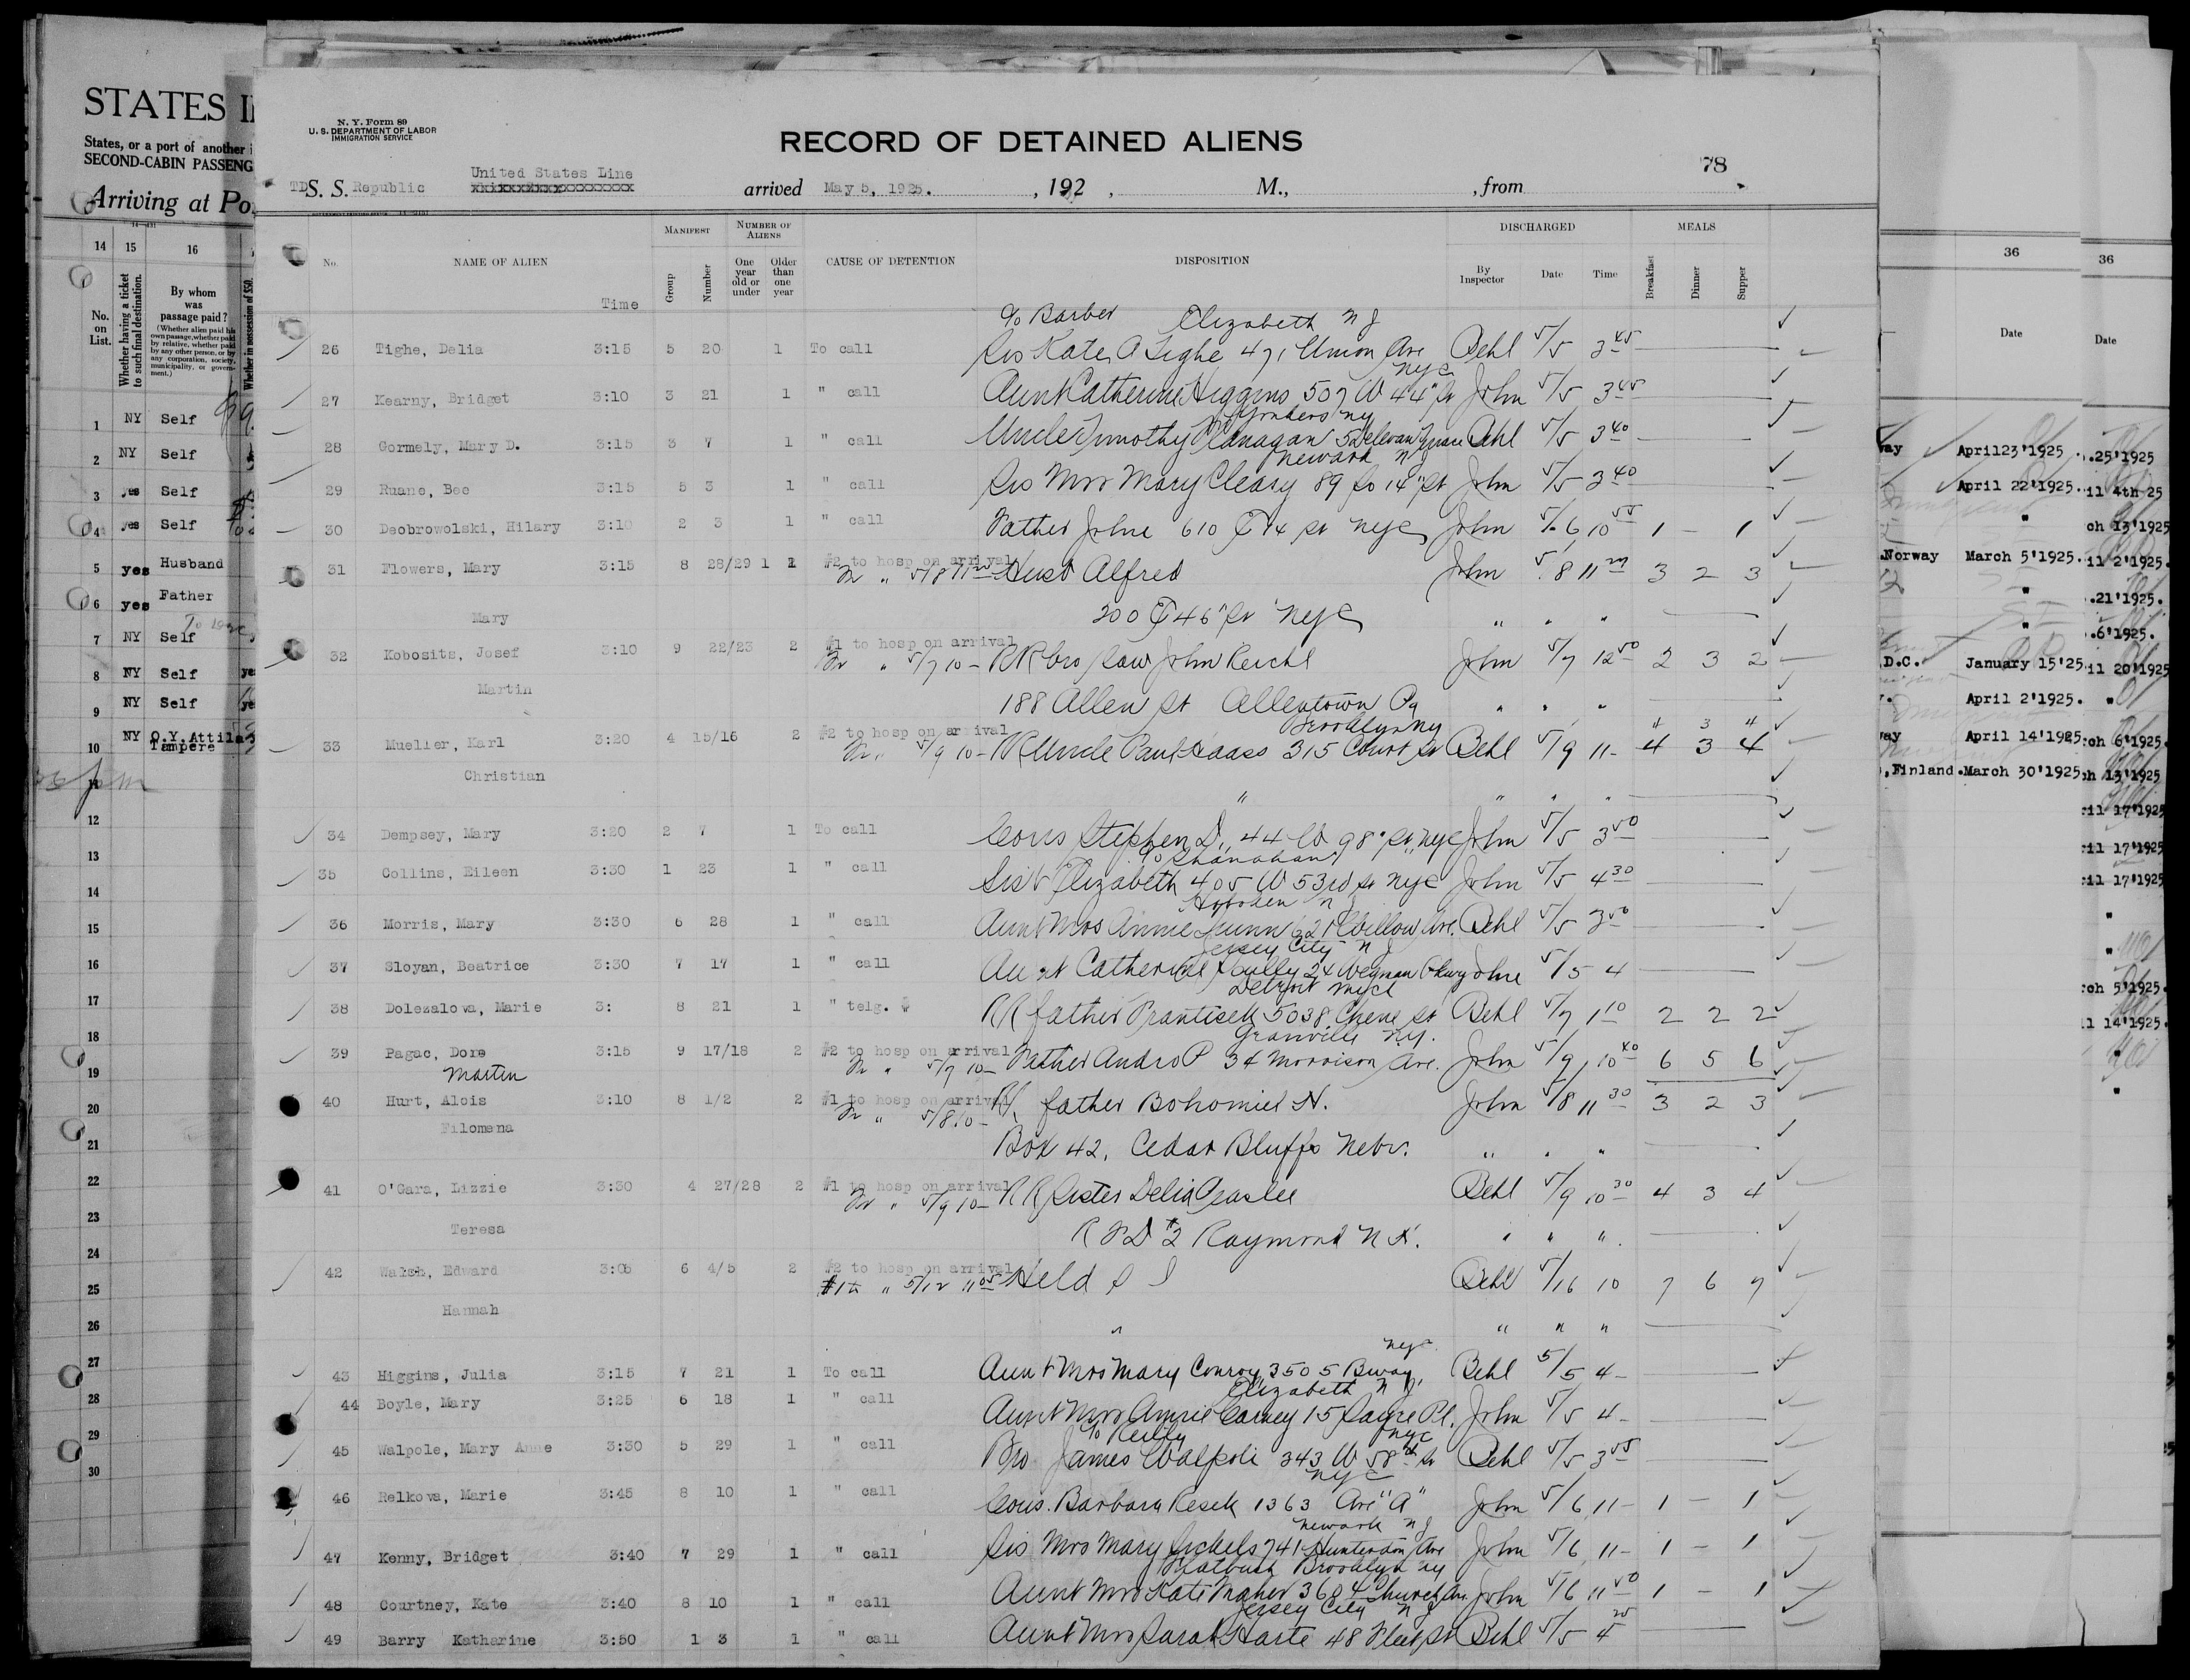 STATES
States, or a port of another
SECOND-CABIN PASSENG
Arriving at Po
14 15 16
No. on List.
Whether having a ticket to such final destination.
By whom was passage paid?
(Whether alien paid his own passage, whether paid by relative, whether paid by any other person, or by any corporation, society, municipality, or government.)
Whether in possession of $50.
1 NY Self
2 NY Self
3 yes Self
4 yes Self
5 yes Husband
6 yes Father
7 NY Self
8 NY Self
9 NY Self
10 NY O.Y. Attila Tampere
12
13
14
15
16
17
18
19
20
21
22
23
24
25
26
27
28
29
30
N. Y. Form 89
U. S. DEPARTMENT OF LABOR
IMMIGRATION SERVICE
RECORD OF DETAINED ALIENS
78
TD S. S. Republic United States Line arrived May 5, 1925. , 192 , M., , from
No. NAME OF ALIEN Time MANIFEST Group Number NUMBER OF ALIENS One year old or under Older than one year CAUSE OF DETENTION DISPOSITION DISCHARGED By Inspector Date Time MEALS Breakfast Dinner Supper
c/o Barber Elizabeth N J
26 Tighe, Delia 3:15 5 20 1 To call Sis Kate A Tighe 471 Union Ave Behl 5/5 3 45
NYC
27 Kearny, Bridget 3:10 3 21 1 " call Aunt Catherine Higgins 507 W 44" St John 5/5 3 45
Yonkers NY
28 Gormely, Mary D. 3:15 3 7 1 " call Uncle Timothy Flanagan 5 Delevan Behl 5/5 3 40
Newark N J
29 Ruane, Bee 3:15 5 3 1 " call Sis Mrs Mary Cleary 89 So 14" St John 5/5 3 40
30 Deobrowolski, Hilary 3:10 2 3 1 " call Father John 610 E 14 St NYC John 5/6 10 55 1 — 1
31 Flowers, Mary 3:15 8 28/29 1 1 #2 to hosp on arrival
Fr " 5/8 11 20 Husb Alfred John 5/8 11 20 3 2 3
Mary 200 E 46" St NYC " " "
32 Kobosits, Josef 3:10 9 22/23 2 #1 to hosp on arrival
Fr " 5/7 10 - RR bro/law John Reichl John 5/7 12 50 2 3 2
Martin 188 Allen St Allentown Pa " " "
Brooklyn NY 4 3 4
33 Mueller, Karl 3:20 4 15/16 2 #2 to hosp on arrival
Fr " 5/9 10 - RR Uncle Paul Haass 315 Court St Behl 5/9 11 - 4 3 4
Christian " " " "
34 Dempsey, Mary 3:20 2 7 1 To call Cous Stephen D. 44 W 98" St NYC John 5/5 3 50
c/o Shanahan
35 Collins, Eileen 3:30 1 23 1 " call Sist Elizabeth 405 W 53rd St NYC John 5/5 4 30
Hoboken N J
36 Morris, Mary 3:30 6 28 1 " call Aunt Mrs Annie 621 Willow Ave. Behl 5/5 3 50
Jersey City N J
37 Sloyan, Beatrice 3:30 7 17 1 " call Aunt Catherine Scully 24 Wegman Pkwy John 5/5 4
Detroit Mich
38 Dolezalova, Marie 3: 8 21 1 " telg. RR father Frantisek 5038 Chene St Behl 5/7 1 10 2 2 2
Granville NY.
39 Pagac, Dore 3:15 9 17/18 2 #2 to hosp on arrival
Martin Fr " 5/7 10 - Father Andro P 34 Morrison Ave. John 5/9 10 40 6 5 6
40 Hurt, Alois 3:10 8 1/2 2 #1 to hosp on arrival
Fr " 5/8 10 - father Bohomiel H. John 5/8 11 30 3 2 3
Filomena Box 42, Cedar Bluffs Nebr. " " "
41 O'Gara, Lizzie 3:30 4 27/28 2 #1 to hosp on arrival
Fr " 5/9 10 - RR Sister Delia Peaslee Behl 5/9 10 30 4 3 4
Teresa R F D #2 Raymond N H. " " "
42 Walsh, Edward 3:05 6 4/5 2 #2 to hosp on arrival
#1 to " 5/12 11 05 Held S I Behl 5/16 10 7 6 7
Hannah " " " "
NYC
43 Higgins, Julia 3:15 7 21 1 To call Aunt Mrs Mary Conroy 3505 Bway, Behl 5/5 4 -
Elizabeth N J
44 Boyle, Mary 3:25 6 18 1 " call Aunt Mrs Annie Carney 15 Sayre Pl. John 5/5 4 -
c/o Reilly NYC
45 Walpole, Mary Anne 3:30 5 29 1 " call Bro James Walpole 343 W 58th St Behl 5/5 3 55
NYC
46 Relkova, Marie 3:45 8 10 1 " call Cous. Barbara Resek 1363 Ave "A" John 5/6 11 - 1 — 1
Newark N J
47 Kenny, Bridget 3:40 7 29 1 " call Sis Mrs Mary Sickels 741 Hunterdon Ave John 5/6 11 - 1 — 1
Flatbush Brooklyn NY
48 Courtney, Kate 3:40 8 10 1 " call Aunt Mrs Kate Maher 3604 Church Av. John 5/6 11 50 1 — 1
Jersey City N J
49 Barry Katharine 3:50 1 3 1 " call Aunt Mrs Sarah Harte 48 Fleet St Behl 5/5 4 25
36 36
Date Date
April 23'1925 . .25'1925
April 22'1925. il 4th 25
" ch 13'1925
.Norway March 5'1925. il 2'1925.
" .21'1925.
" .6'1925.
.D.C. January 15'25 il 20'1925
April 2'1925. "
way April 14'1925. ch 6'1925.
, Finland. March 30'1925. h 13'1925
ril 17'1925
ril 17'1925
ril 17'1925
"
"
rch 5'1925.
il 14'1925.
"
"